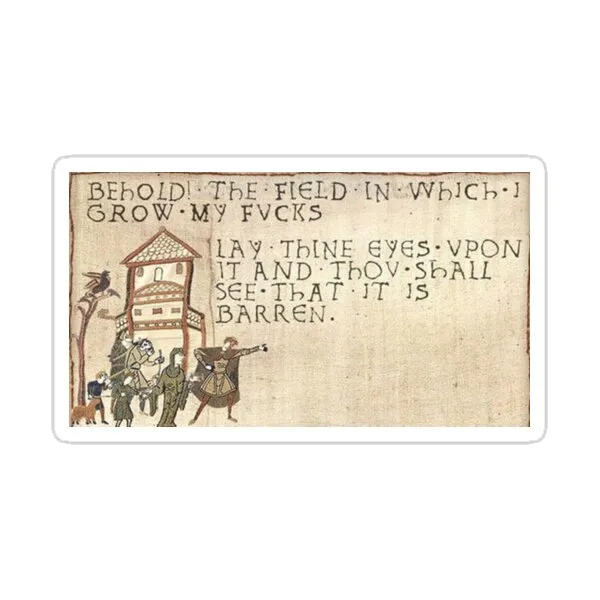 BEHOLD! · THE · FIELD · IN · WHICH · I
GROW · MY FVCKS
LAY · THINE EYES · VPON
IT AND · THOV · SHALL
SEE · THAT · IT IS
BARREN.